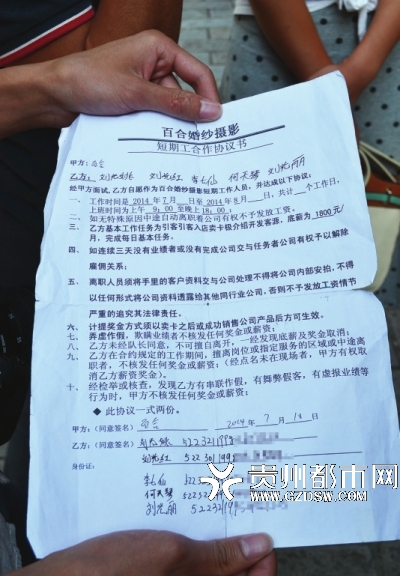 百合婚纱摄影
短期工合作协议书
甲方:
乙方:
经甲方面试,乙方自愿作为百合婚纱摄影短期工作人员,并达成以下协议:
一、 工作时间是2014年7月 日至2014年8月 日,共计 个工作日,
上班时间为上午9:00至晚上18:00;
二、 如无特殊原因中途自动离职者公司有权不予发放工资。
三、 乙方基本工作任务为引客引客入店卖卡极介绍开发客源,底薪为1800元/
月,完成每日基本任务。
四、 如连续三天没有业绩者或没有完成公司交与任务者公司有权予以解除
雇佣关系;
五、 离职人员须将手里的客户资料交与公司处理不得将公司内部安拍,不得
以任何形式将公司资料透露给其他同行业公司,否则不予发放工资情节
严重的追究其法律责任。
六、 计提奖金方式须以卖卡之后或成功销售公司产品后方可生效。
七、 弄虚作假,欺瞒业绩者不核发任何奖金或薪资;
八、 乙方未经队长同意,不可擅自离开,一经发现底薪及奖金取消;
九、 乙方在合约规定的工作期间,擅离岗位或指定服务的区域或中途离
职者,不核发任何奖金或薪资;(经点名未在现场者,甲方有权取
消乙方薪资奖金)。
十、 经检举或核查,发现乙方有串联作假,有舞弊假客,有虚报业绩等
行为时,甲方不核发任何奖金或薪资;
◆ 此协议一式两份。
甲方:(同意签名) 2014年7月18日
乙方:(同意签名) 522321199
刘忠红 522301199
身份证:
李毛仙 522
何天琴 52232
刘忠丽 5223219
贵州都市网
WWW.GZDSW.COM